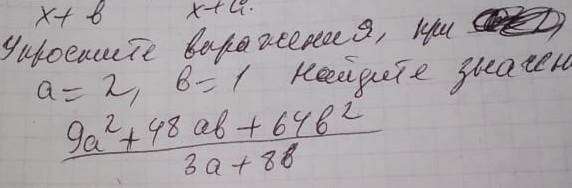 x+в x+а.
Упростите выражения, при
a=2, в=1 Найдите значен
9a²+48ав+64в²
3a+8в